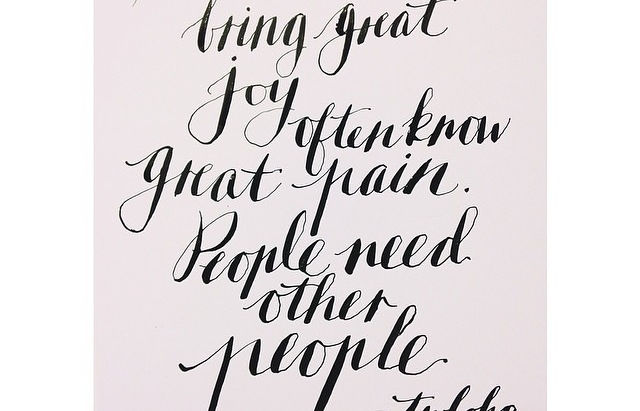 bring great
joy
often know
great pain.
People need
other
people.